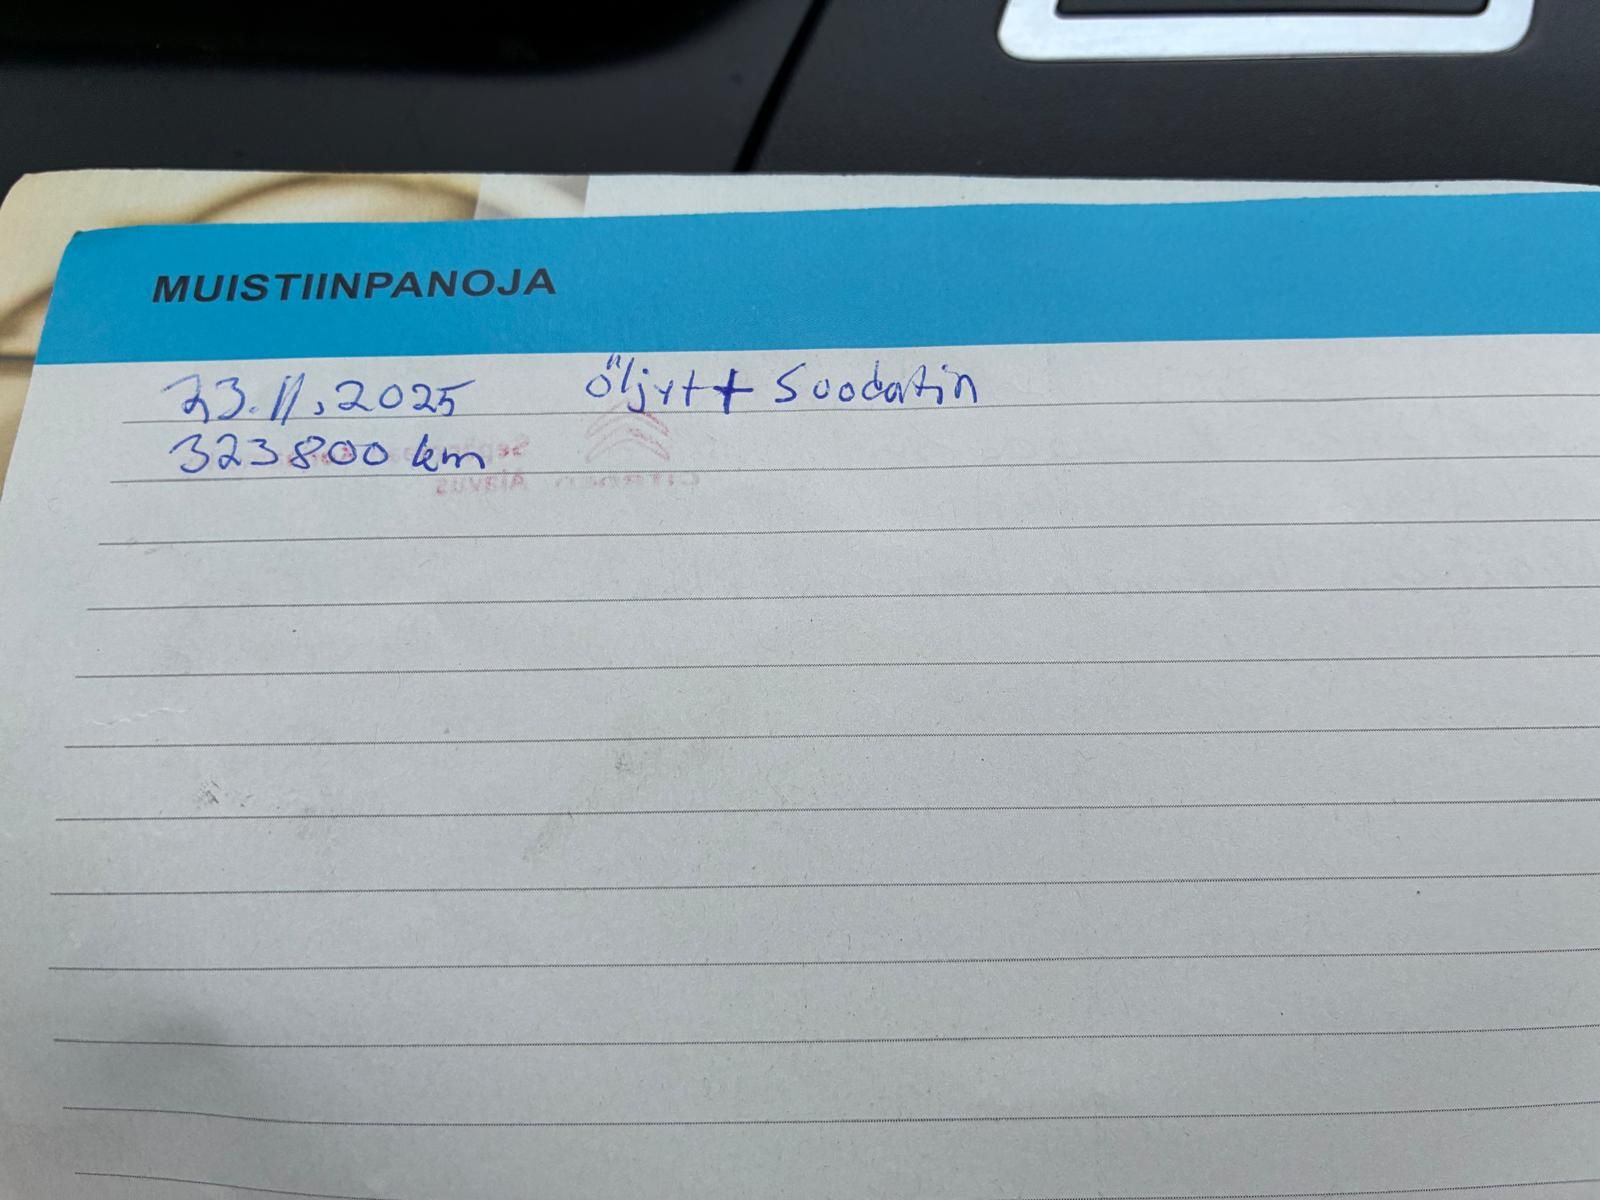 MUISTIINPANOJA
23.11.2025 Öljyt + Suodatin
323800 km
CITROËN Alavus